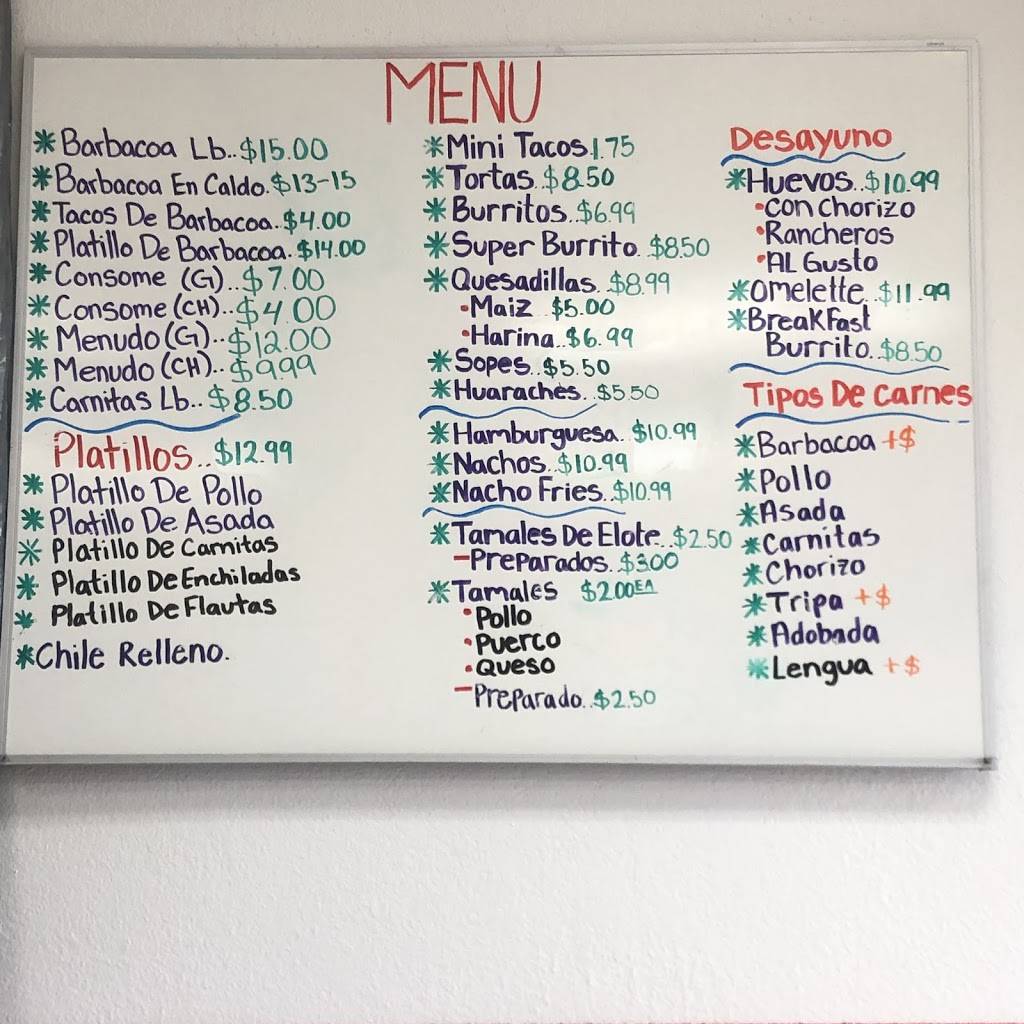 MENU
* Barbacoa Lb..$15.00
* Barbacoa En Caldo.$13-15
* Tacos De Barbacoa.$4.00
* Platillo De Barbacoa.$14.00
* Consome (G)..$7.00
* Consome (CH)..$4.00
* Menudo (G)..$12.00
* Menudo (CH)..$9.99
* Carnitas Lb..$8.50
Platillos..$12.99
* Platillo De Pollo
* Platillo De Asada
* Platillo De Carnitas
* Platillo De Enchiladas
* Platillo De Flautas
* Chile Relleno.
* Mini Tacos.1.75
* Tortas.$8.50
* Burritos..$6.99
* Super Burrito.$8.50
* Quesadillas.$8.99
• Maiz $5.00
• Harina..$6.99
* Sopes..$5.50
* Huaraches.$5.50
* Hamburguesa.$10.99
* Nachos..$10.99
* Nacho Fries.$10.99
* Tamales De Elote..$2.50
- Preparados.$3.00
* Tamales $2.00 EA
• Pollo
• Puerco
• Queso
- Preparado..$2.50
Desayuno
* Huevos..$10.99
• Con Chorizo
• Rancheros
• AL Gusto
* Omelette.$11.99
* BreakFast
Burrito..$8.50
Tipos De Carnes
* Barbacoa +$
* Pollo
* Asada
* Carnitas
* Chorizo
* Tripa +$
* Adobada
* Lengua +$